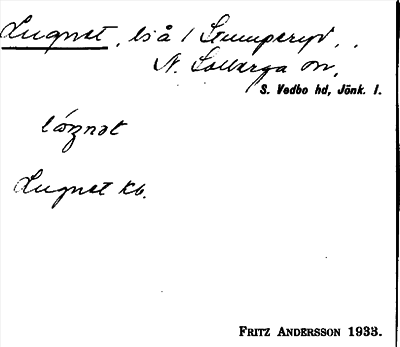 Lugnet, ls å / Stumperyd,
N. Solberga sn,
S. Vedbo hd, Jönk. l.
Lugnet kb.
FRITZ ANDERSSON 1933.